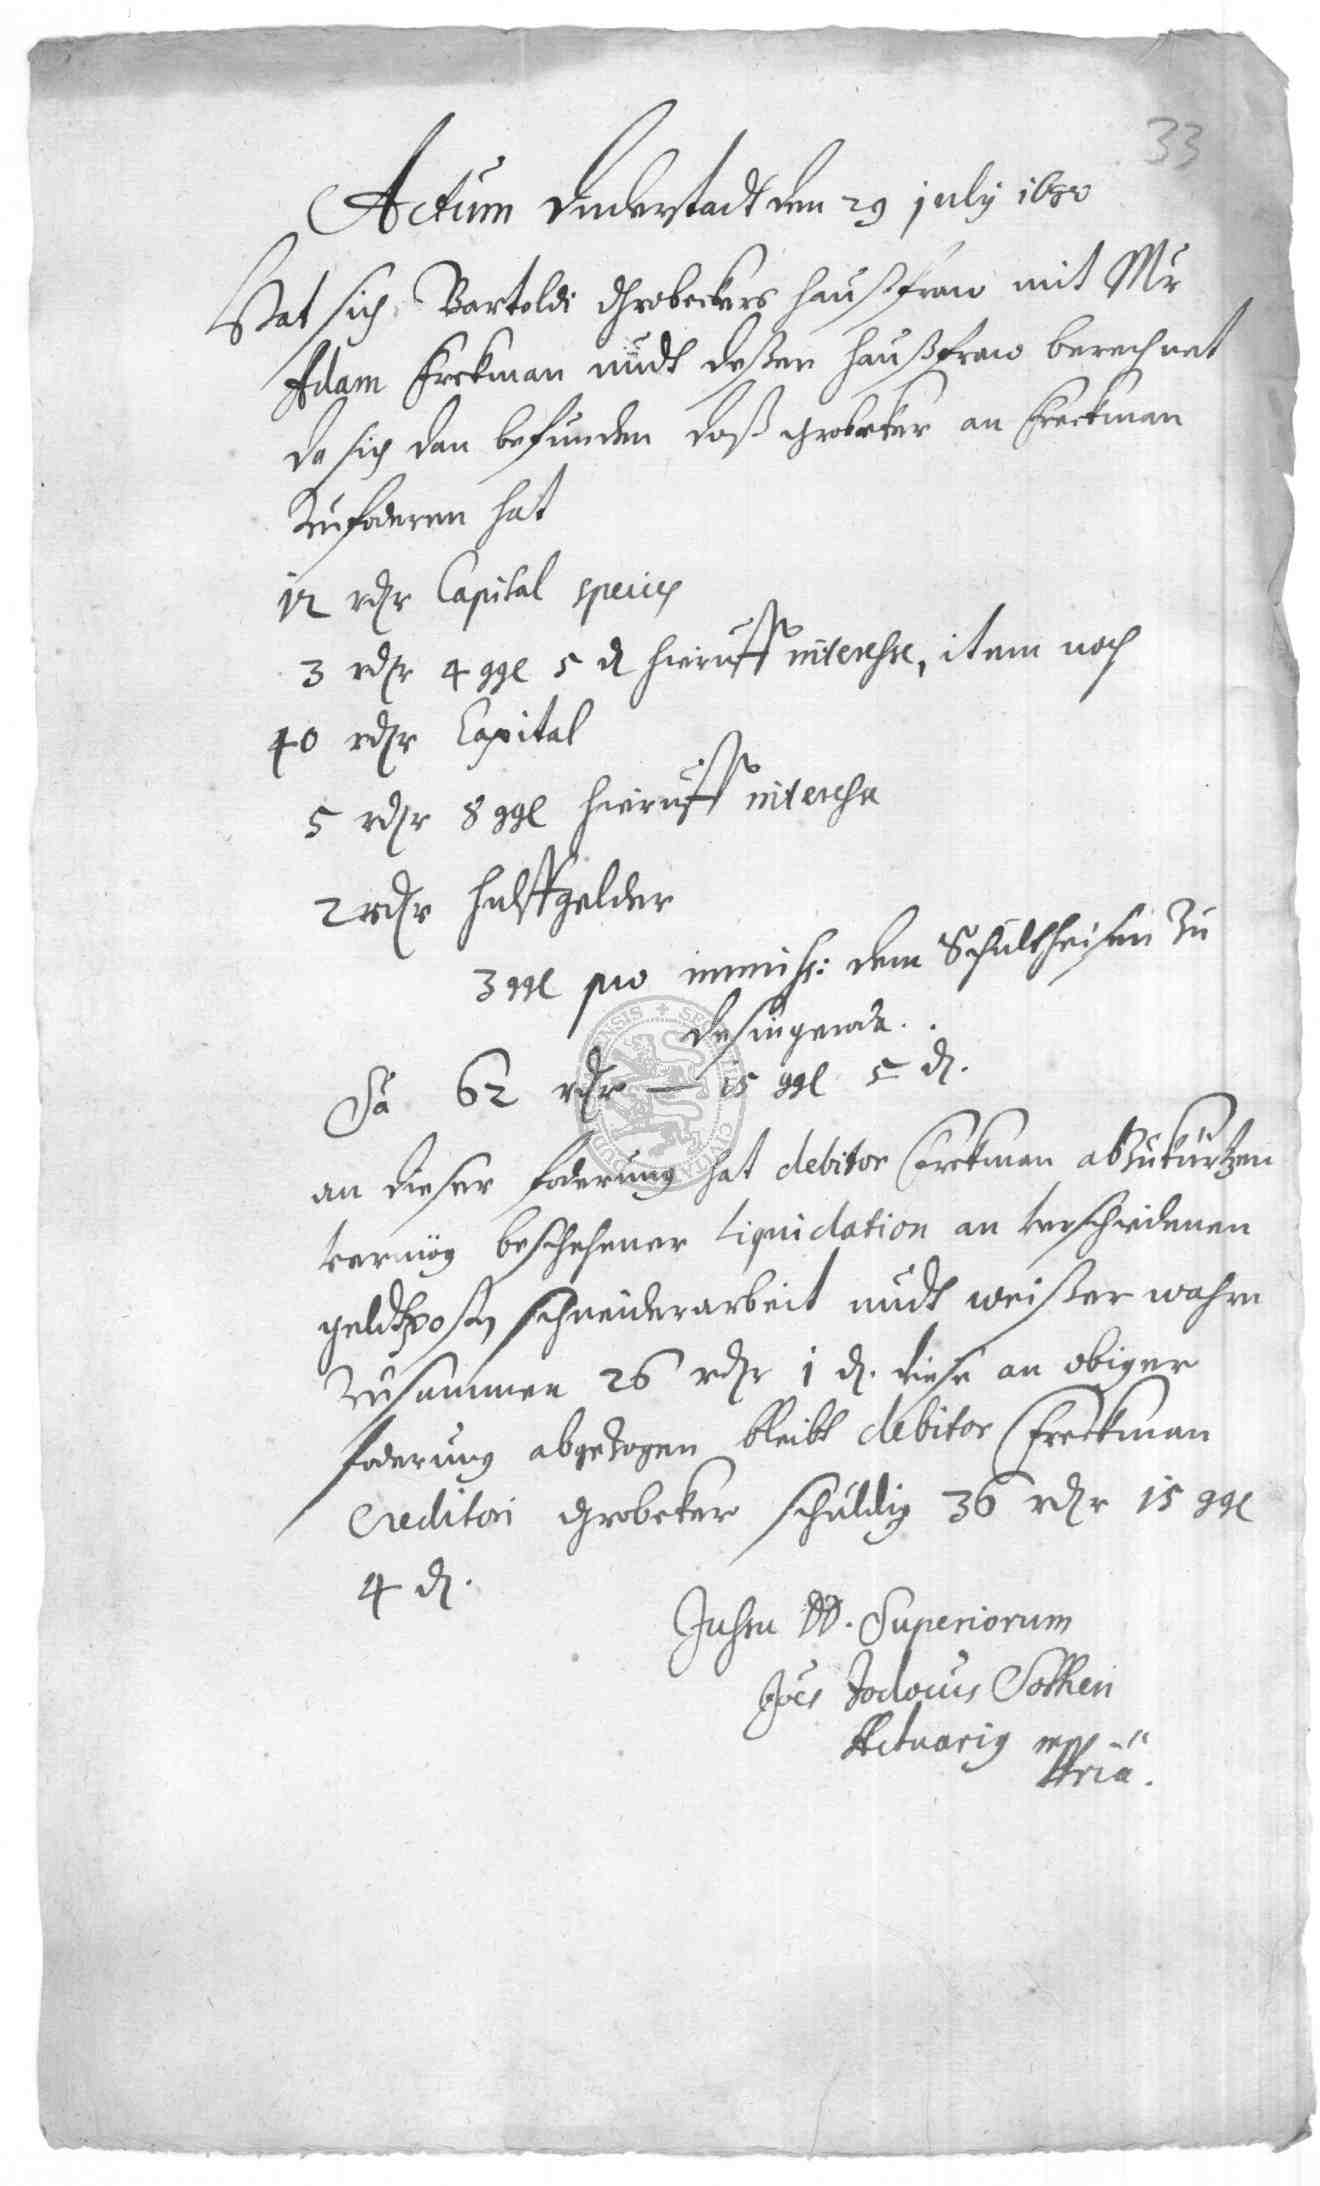 33
Actum Duderstadt den 29 july 1680
Hat sich Bartoldi Grobeckers haußfraw mit Mr
Adam Freckman undt deßen haußfraw berechnet
da sich dan befunden daß Grobecker an Freckman
zufoderen hat
12 rthlr Capital species
3 rthlr 4 ggl 5 d hieruff interesse, item noch
40 rthlr Capital
5 rthlr 8 ggl hieruff interesse
2 rthlr hulffgelder
3 ggl pro immiss: dem Schultheisen zu
desingeroda.
Sa 62 rthlr — 15 ggl 5 d.
an dieser foderung hat debitor Freckman abzukürtzen
vermög beschehener liquidation an verschiedenen
geldtposten schneiderarbeit undt weißer wahre
zusammen 26 rthlr 1 d. diese an obiger
foderung abgezogen bleibt debitor Freckman
Creditori Grobecker schuldig 36 rthlr 15 ggl
4 d.
Jussu DD. Superiorum
Jodocus
Actuarius mpp
ria.